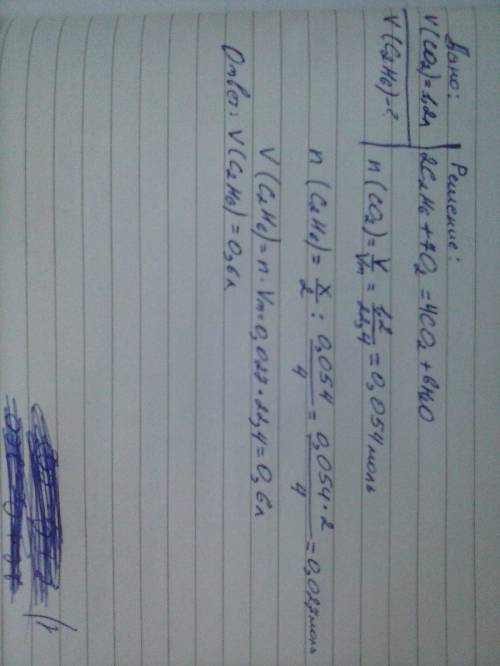 Дано:
V(CO2)=1,2л
V(C2H6)-?
Решение:
2C2H6+7O2=4CO2+6H2O
n(CO2)=V/Vm=1,2/22,4=0,054моль
n(C2H6)=x/2:0,054/4=0,054*2/4=0,027моль
V(C2H6)=n·Vm=0,027*22,4=0,6л
Ответ: V(C2H6)=0,6л